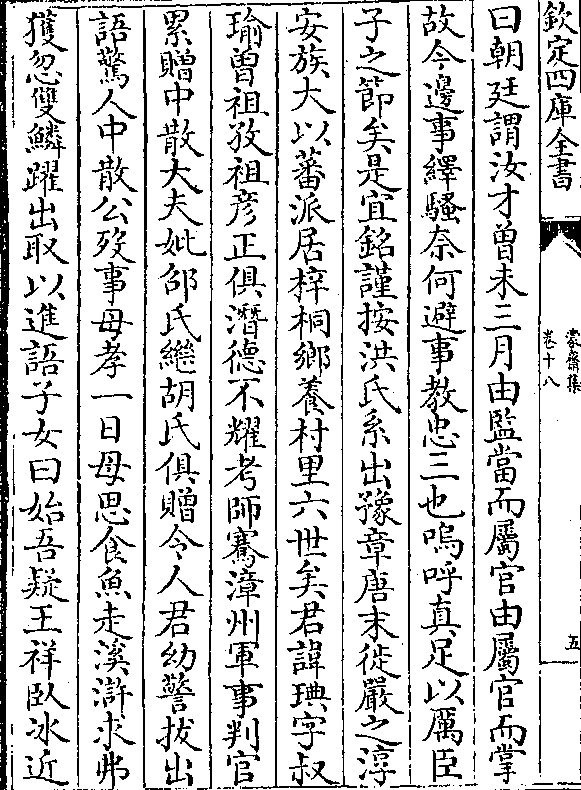 欽定四庫全書
蒙齋集
卷十八
五
曰朝廷謂汝才曾未三月由監當而屬官由屬官而掌
故今邊事繹騷奈何避事教忠三也嗚呼真足以厲臣
子之節矣是宜銘謹按洪氏系出豫章唐末徙嚴之淳
安族大以蕃派居梓桐鄉養村里六世矣君諱琠字叔
瑜曾祖攷祖彦正俱潛德不耀考師騫漳州軍事判官
累贈中散大夫妣邵氏繼胡氏俱贈令人君幼警拔出
語驚人中散公歿事母孝一日母思食魚走溪滸求弗
獲忽雙鱗躍出取以進語子女曰始吾疑王祥臥冰近